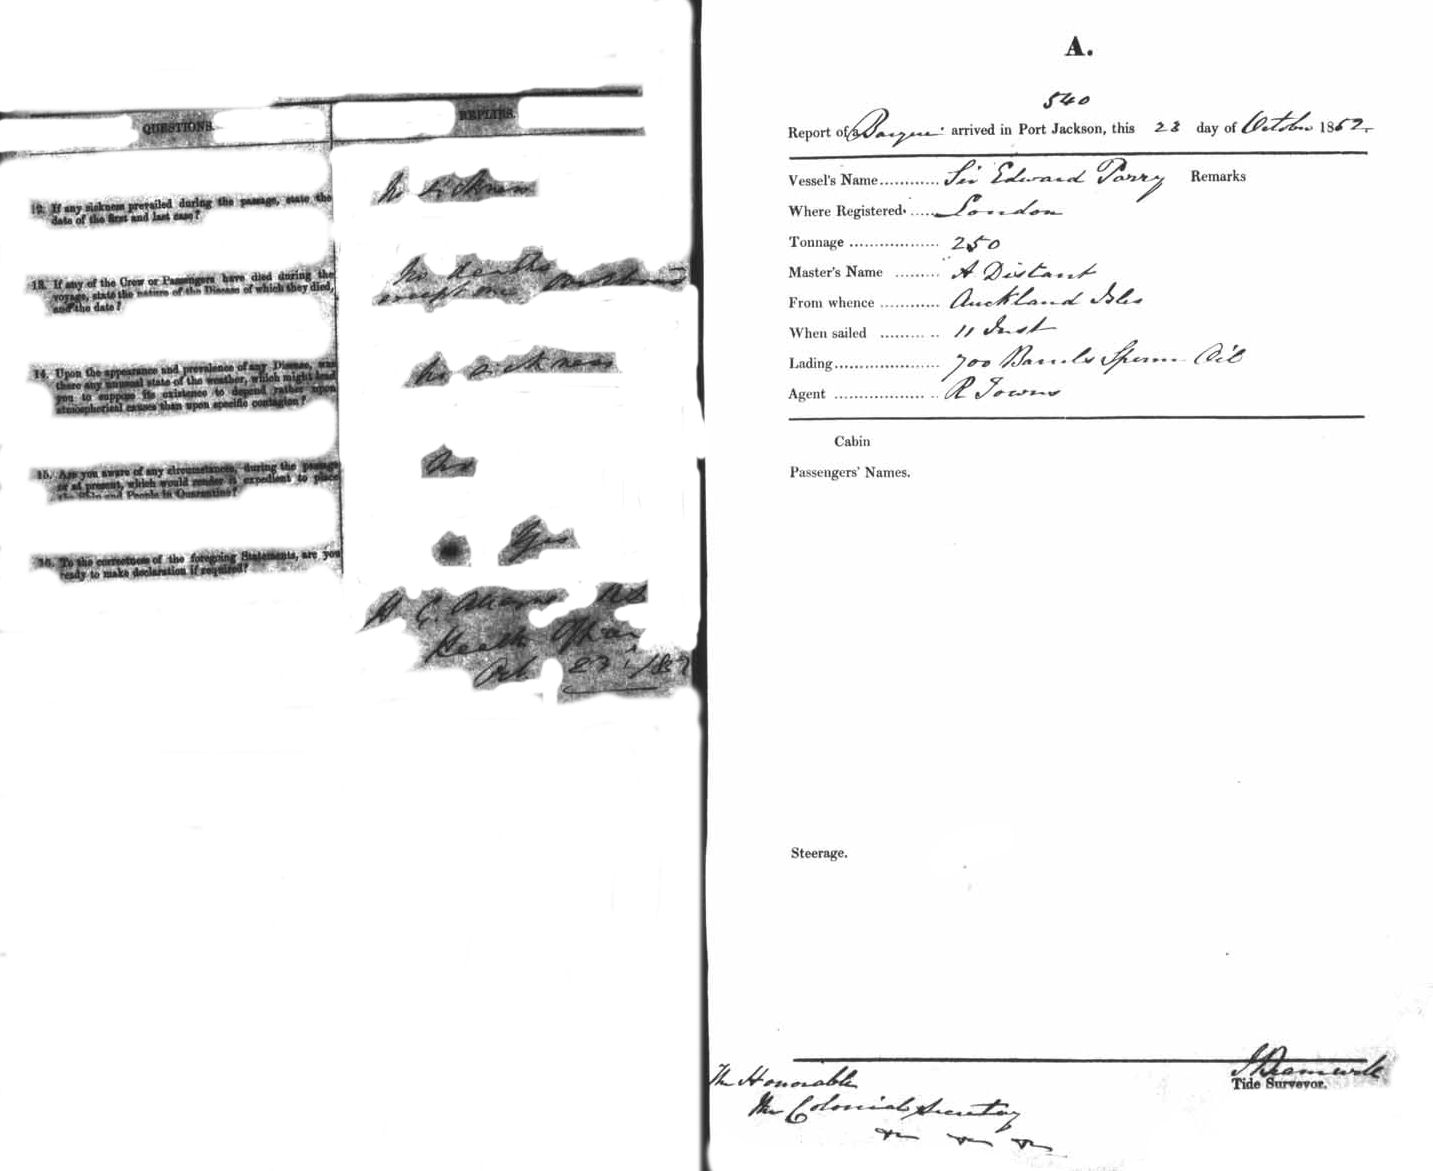 QUESTIONS.
REPLIES.
12. If any sickness prevailed during the passage, state the
date of the first and last case?
No sickness
13. If any of the Crew or Passengers have died during the
voyage, state the nature of the Disease of which they died,
and the date?
No deaths
except one
14. Upon the appearance and prevalence of any Disease, was
there any unusual state of the weather, which might lead
you to suppose its existence to depend rather upon
atmospherical causes than upon specific contagion?
No sickness
15. Are you aware of any circumstances, during the passage
or at present, which would render it expedient to place
the Ship and People in Quarantine?
No
16. To the correctness of the foregoing Statements, are you
ready to make declaration if required?
Yes
H G
Health Officer
Oct 23 / 1852
A.
540
Report of a Barque arrived in Port Jackson, this 23 day of October 1852
Vessel's Name............ Sir Edward Parry Remarks
Where Registered...... London
Tonnage .................. 250
Master's Name ......... A Distant
From whence ............ Auckland Isles
When sailed ............ 11 Inst
Lading..................... 700 Barrels Sperm Oil
Agent .................... R Towns
Cabin
Passengers' Names.
Steerage.
Tide Surveyor.
The Honorable
The Colonial Secretary